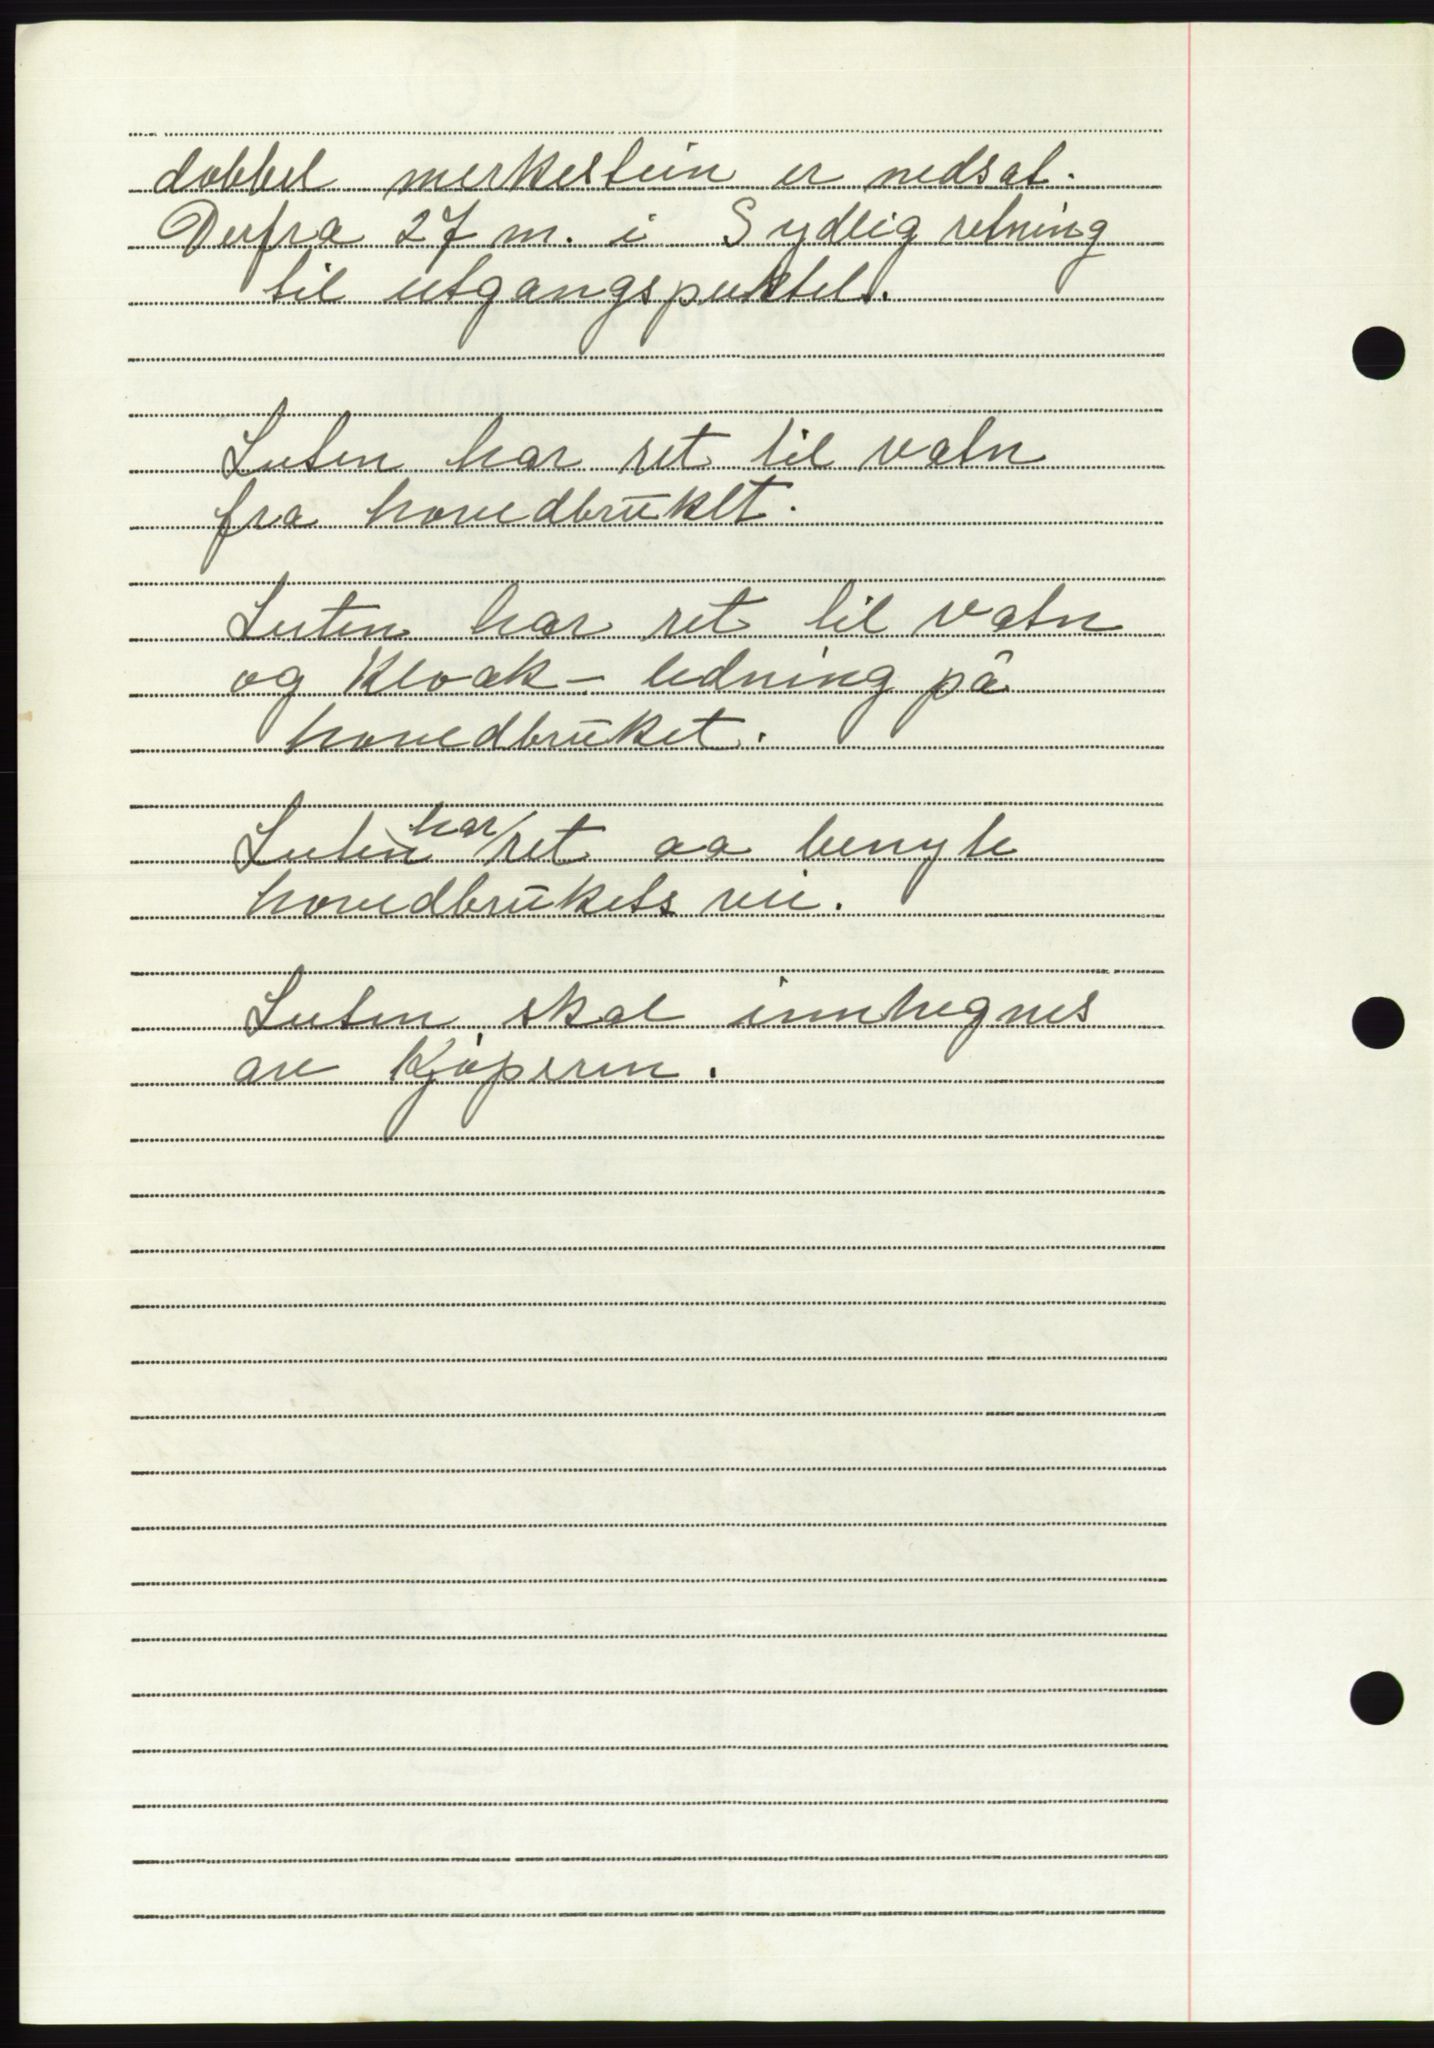 dobbel merkestein er nedsat.
Derfra 27 m. i Sydlig retning
til utgangspuktet.
Luten har ret til vatn
fra hovedbruket.
Luten har ret til vatn
og Kloak - ledning på
hovedbruket.
Luten har ret aa benyte
hovedbrukets vei.
Luten skal innhegnes
av Kjøperen.